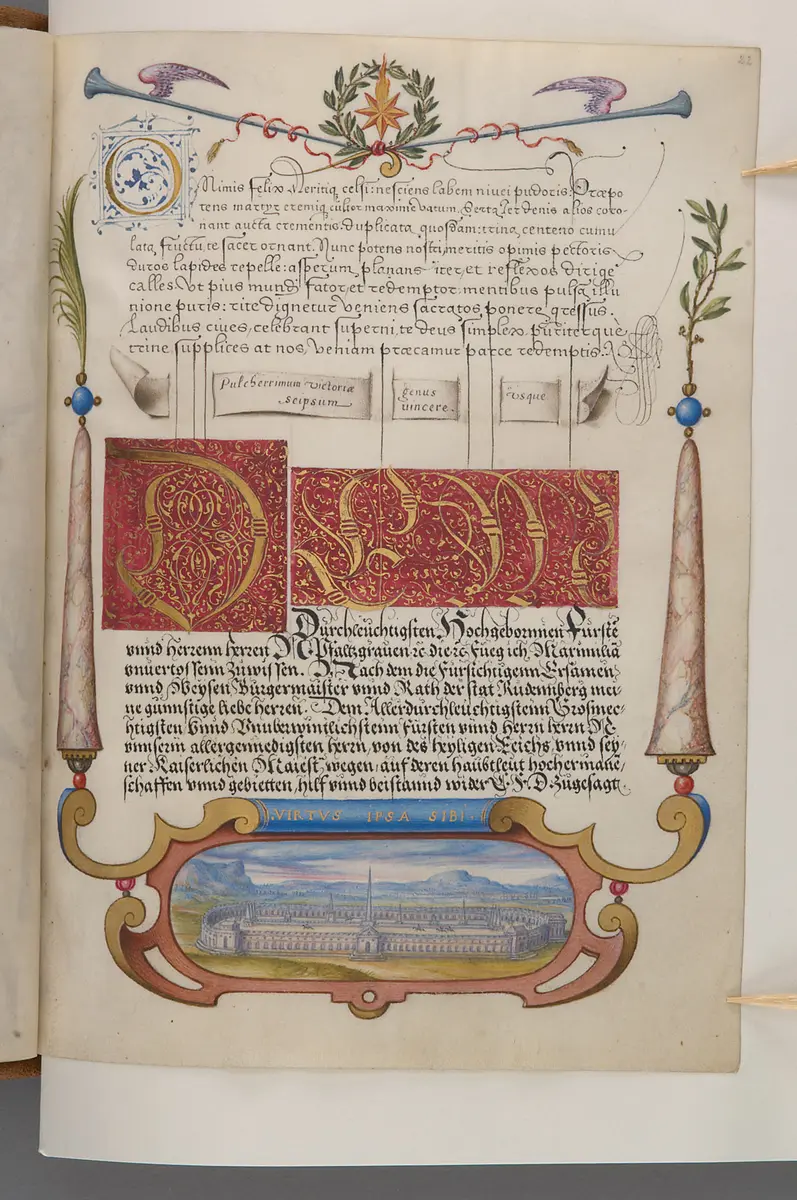 22
O Nimis Felix, Meritiq, celsi: nesciens labem nivei pudoris: Præpo
tens martyr eremiq, cultor maxime vatum. Serta ter denis alios coro-
nant aucta crementis: duplicata quosdam: trina, centeno cumu
lata, fructu, te sacer ornant. Nunc potens nostri, meritis opimis pectoris
duros lapides repelle: asperum planans iter, et reflexos dirige
calles. Ut pius mundi sator, et redemptor: mentibus pulsa illu
nione puris: rite dignetur veniens sacratos ponere gressus.
Laudibus cives, celebrant superni, te deus simplex, pariterque
trine, supplices at nos, veniam præcamur parce redemptis.
Pulcherrimum victoriæ genus usque
seipsum vincere.
D
Durchleuchtigsten Hochgebornnen Fürste
vnnd Herrenn herren N Pfaltzgrauen ꝛc die ꝛc Fueg ich Maximilia
vnuertossenn Zuwissen. Nach dem die Fürsichtigenn Ersamen
vnnd Weysen Burgermaister vnnd Rath der stat Rüdennberg mei-
ne günnstige liebe herren. Dem Allerdurchleuchtigstenn Grosmec-
htigsten vnnd Vnuberwintlichstenn Fürsten vnnd Herrn herrn N
vnnserm allergenedigsten herrn, von des heyligen Reichs vnnd sey-
ner Kaiserlichen Maiest wegen, auf deren haubtleut hochermane,
schaffen vnnd gebietten, hilf vnnd beistannd wider E. F. D. Zugesagt
VIRTVS IPSA SIBI